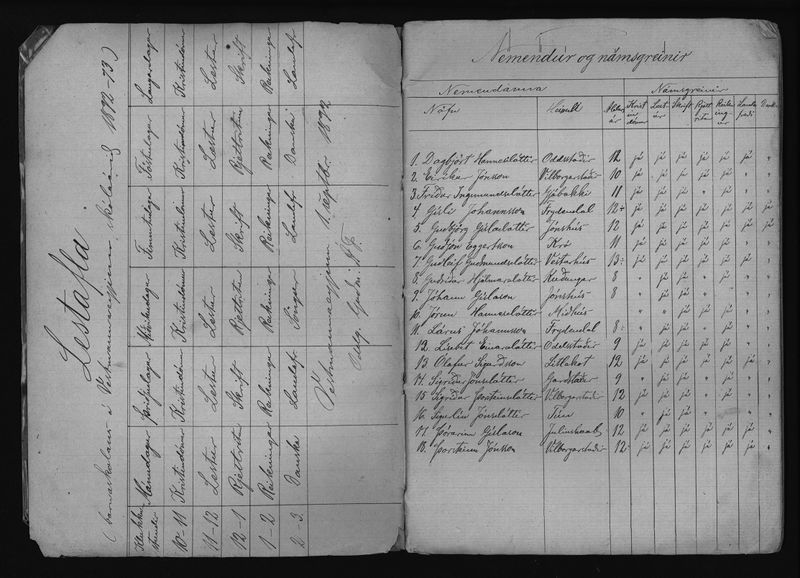 Lestafla
(barnaskólans í Vestmannaeyjum skólaárið 1892-93)
Klukkustundir Mánudagur Þriðjudagur Miðvikudagur Fimmtudagur Föstudagur Laugardagur
10-11 Kristindómr Kristindómr Kristindómr Kristindómr Kristindómr Kristindómr
11-12 Lestur Lestur Lestur Lestur Lestur Lestur
12-1 Rjettritun Skrift Rjettritun Skrift Rjettritun Skrift
1-2 Reikningur Reikningur Reikningur Reikningur Reikningur Reikningur
2-3 Danska Landaf. Söngur Landaf. Danska Landaf.
Vestmannaeyjum 1. septbr. 1892.
Nemendur og námsgreinir
Nemendanna Námsgreinir
Nöfn Heimili Aldursár Kristindómr Lestur Skrift Rjettritun Reikningur Landafræði Dansk
1. Dagbjört Hannesdóttir Oddstaðir 12 já já já já já já "
2. Eirikur Jónsson Vilborgarstaðir 10 já já já já já " "
3. Fríður Ingimundsdóttir Gjábakki 11 já já já " já " "
4. Gísli Jóhannsson Frydendal 12 já já já já já já já
5. Guðbjörg Gísladóttir Jónshús 12 já já já já já já já
6. Guðjón Eggertsson Kró 11 já já já já já " "
7. Guðleif Guðmundsdóttir Vesturhús 13 já já já já já já "
8. Guðríður Hjálmarsdóttir Kuðungur 8 " já já " já " "
9. Jóhann Gíslason Jónshús 8 " já já " já " "
10. Jórunn Hannesdóttir Miðhús " " já já já " "
11. Lárus Jóhannsson Frydendal 8 " já já " já " "
12. Lisebet Einarsdóttir Oddstaðir 9 já já já já já " "
13. Ólafur Sigurdsson Litlakot 12 já já já já já já "
14. Sigríður Jónsdóttir Garðstaðir 9 " já já " já " "
15. Sigríður Þorsteinsdóttir Vilborgarstaðir 12 já já já " já " "
16. Sigurlín Jónsdóttir Túni 10 " já já " " "
17. Þórarinn Gíslason Juliushaab 12 já já já já já já já
18. Þorsteinn Jónsson Vilborgarstaðir 12 já já já já já já "